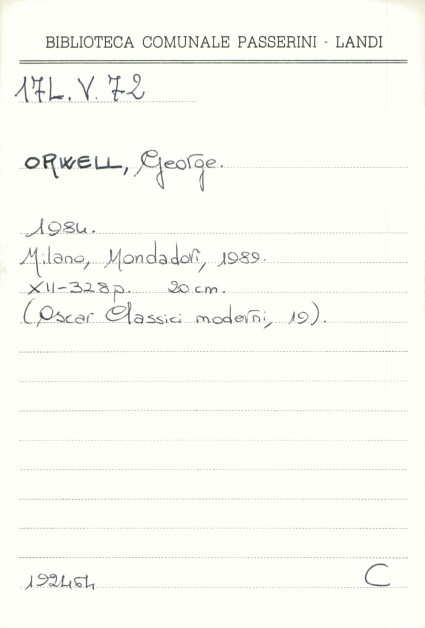 BIBLIOTECA COMUNALE PASSERINI - LANDI
17L. V. 72
ORWELL, George.
1984.
Milano, Mondadori, 1989.
XII-328 p. 20 cm.
(Oscar Classici moderni, 19).
192454
C